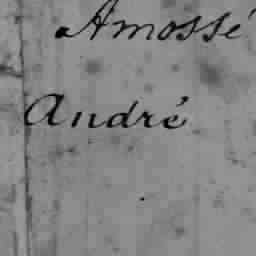 Amossé
André